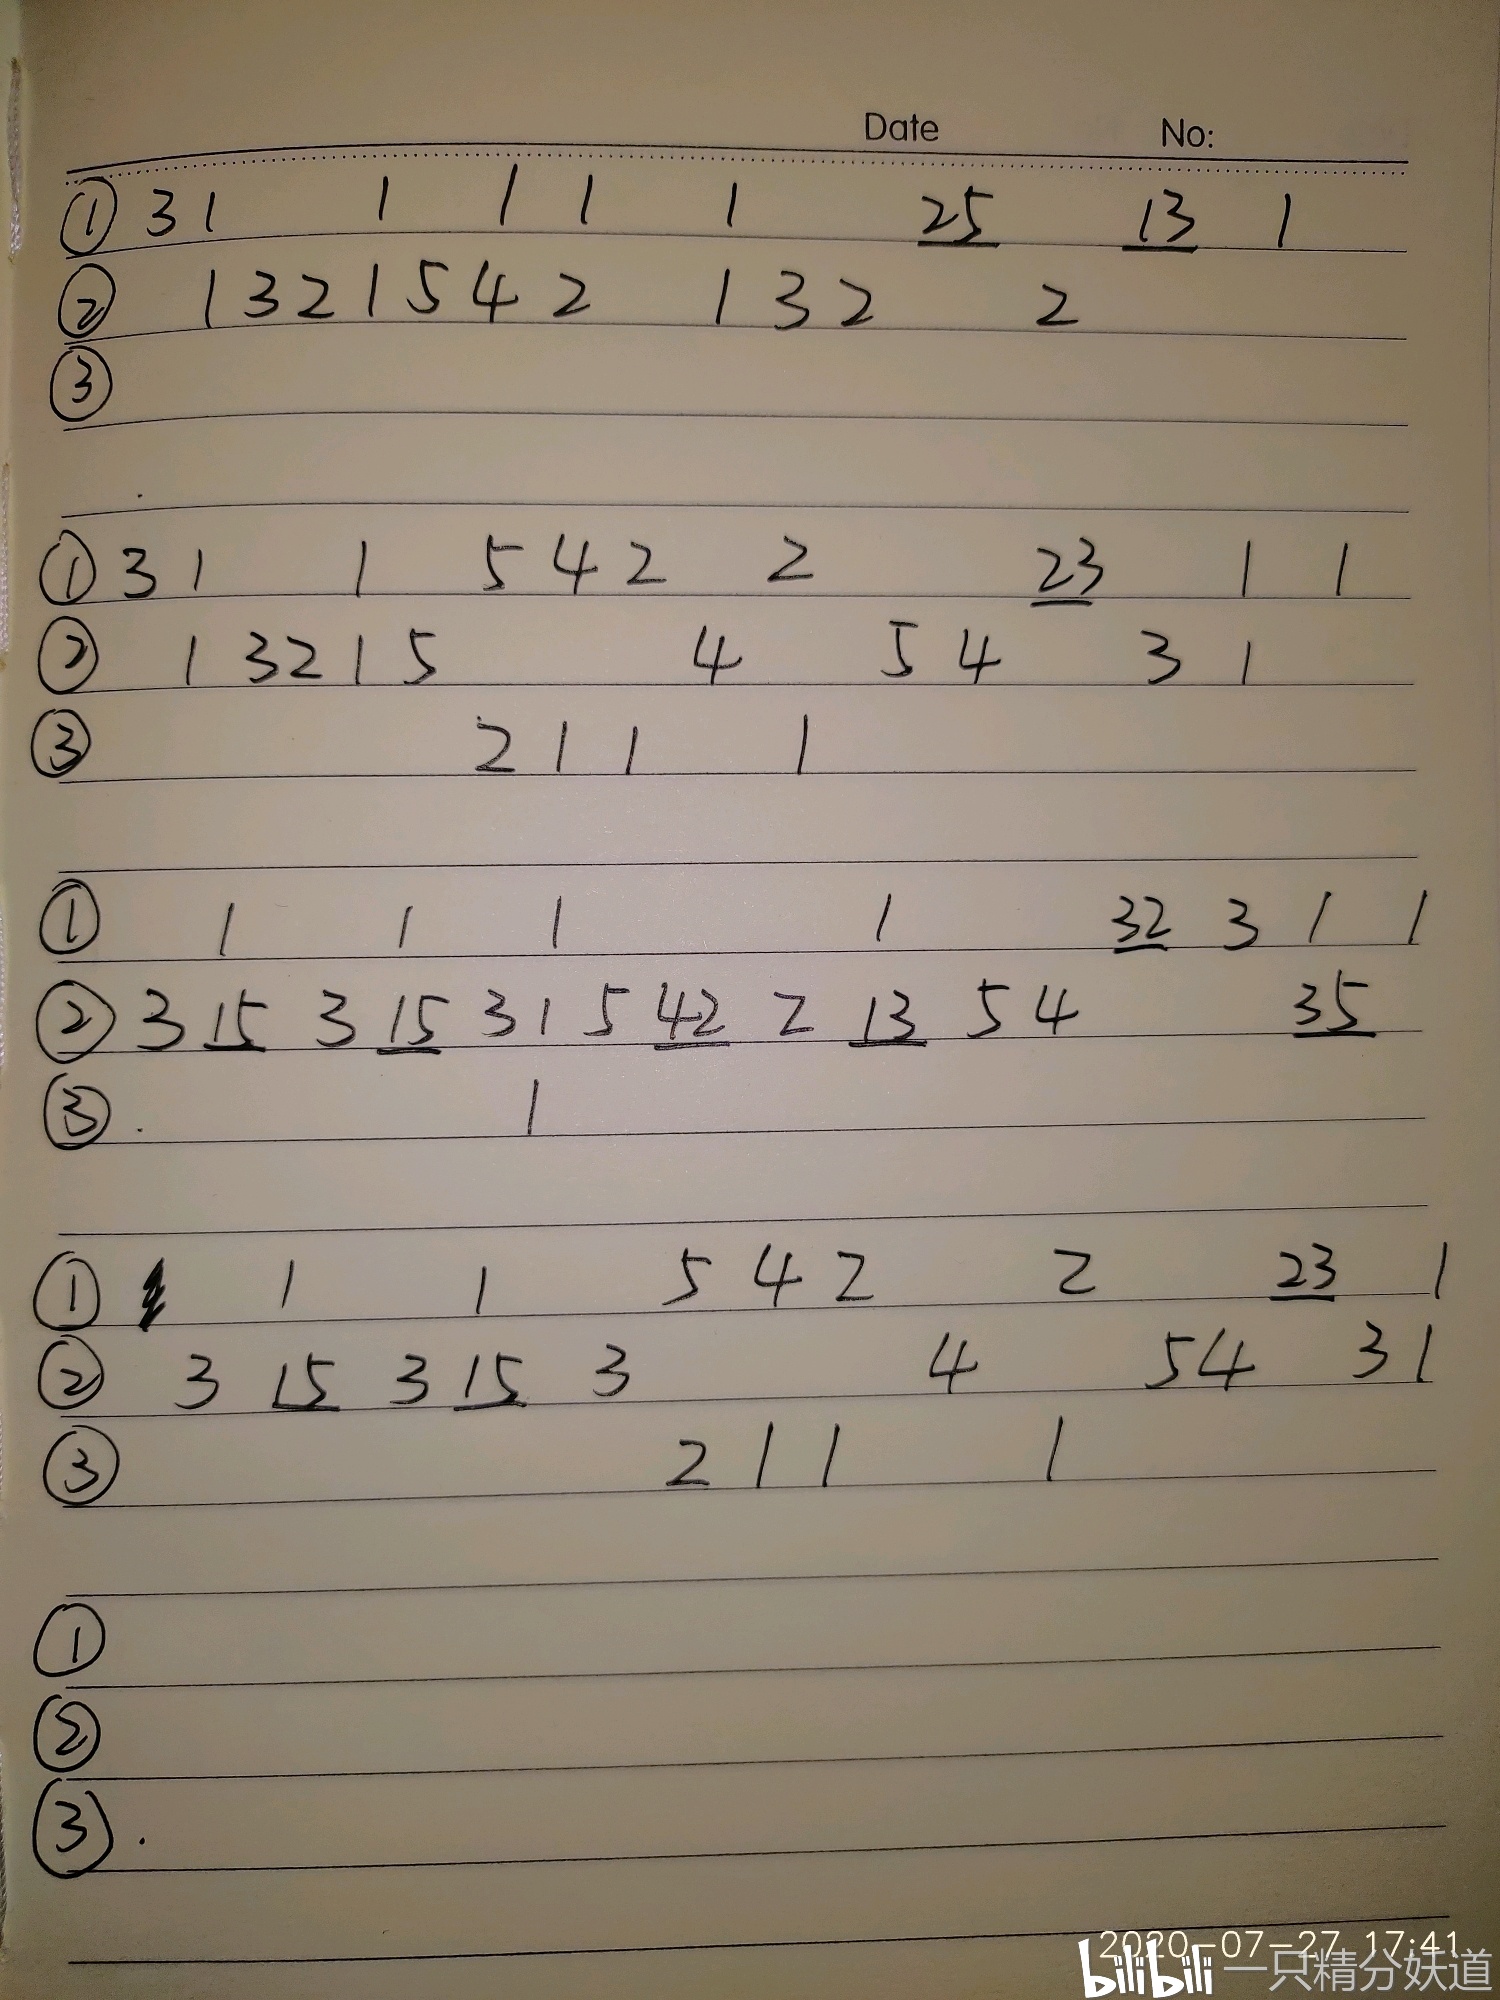 Date No:
① 3 1 1 1 1 1 25 13 1
② 1 3 2 1 5 4 2 1 3 2 2
③
① 3 1 1 5 4 2 2 23 1 1
② 1 3 2 1 5 4 5 4 3 1
③ 2 1 1 1
① 1 1 1 1 32 3 1 1
② 3 15 3 15 3 1 5 42 2 13 5 4 35
③ 1
① 1 1 5 4 2 2 23 1
② 3 15 3 15 3 4 5 4 3 1
③ 2 1 1 1
①
②
③
2020-07-27 17:41
bilibili 一只精分妖道